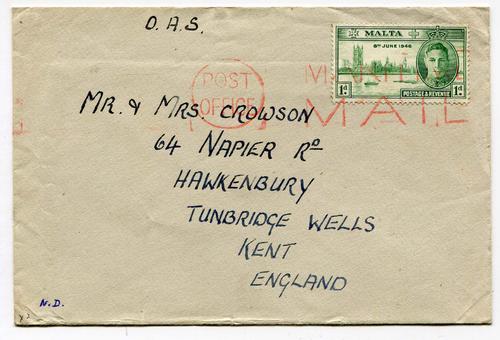 O.A.S.
MALTA
8TH JUNE 1946
POSTAGE & REVENUE
1d
1d
POST
OFFICE
MAIL
MR. & MRS. CROWSON
64 NAPIER RD
HAWKENBURY
TUNBRIDGE WELLS
KENT
ENGLAND
N.D.